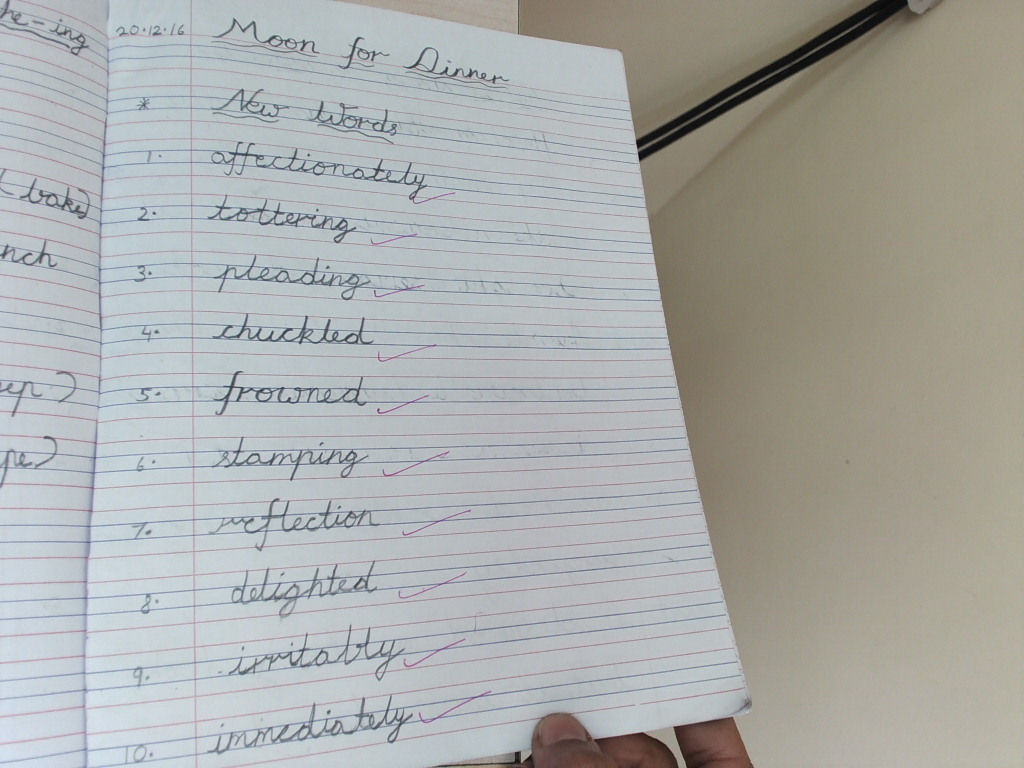 he-ing
(bake)
nch
ep)
pe)
20.12.16 Moon for Dinner
* New Words
1. affectionately
2. tottering
3. pleading
4. chuckled
5. frowned
6. stamping
7. reflection
8. delighted
9. irritably
10. immediately